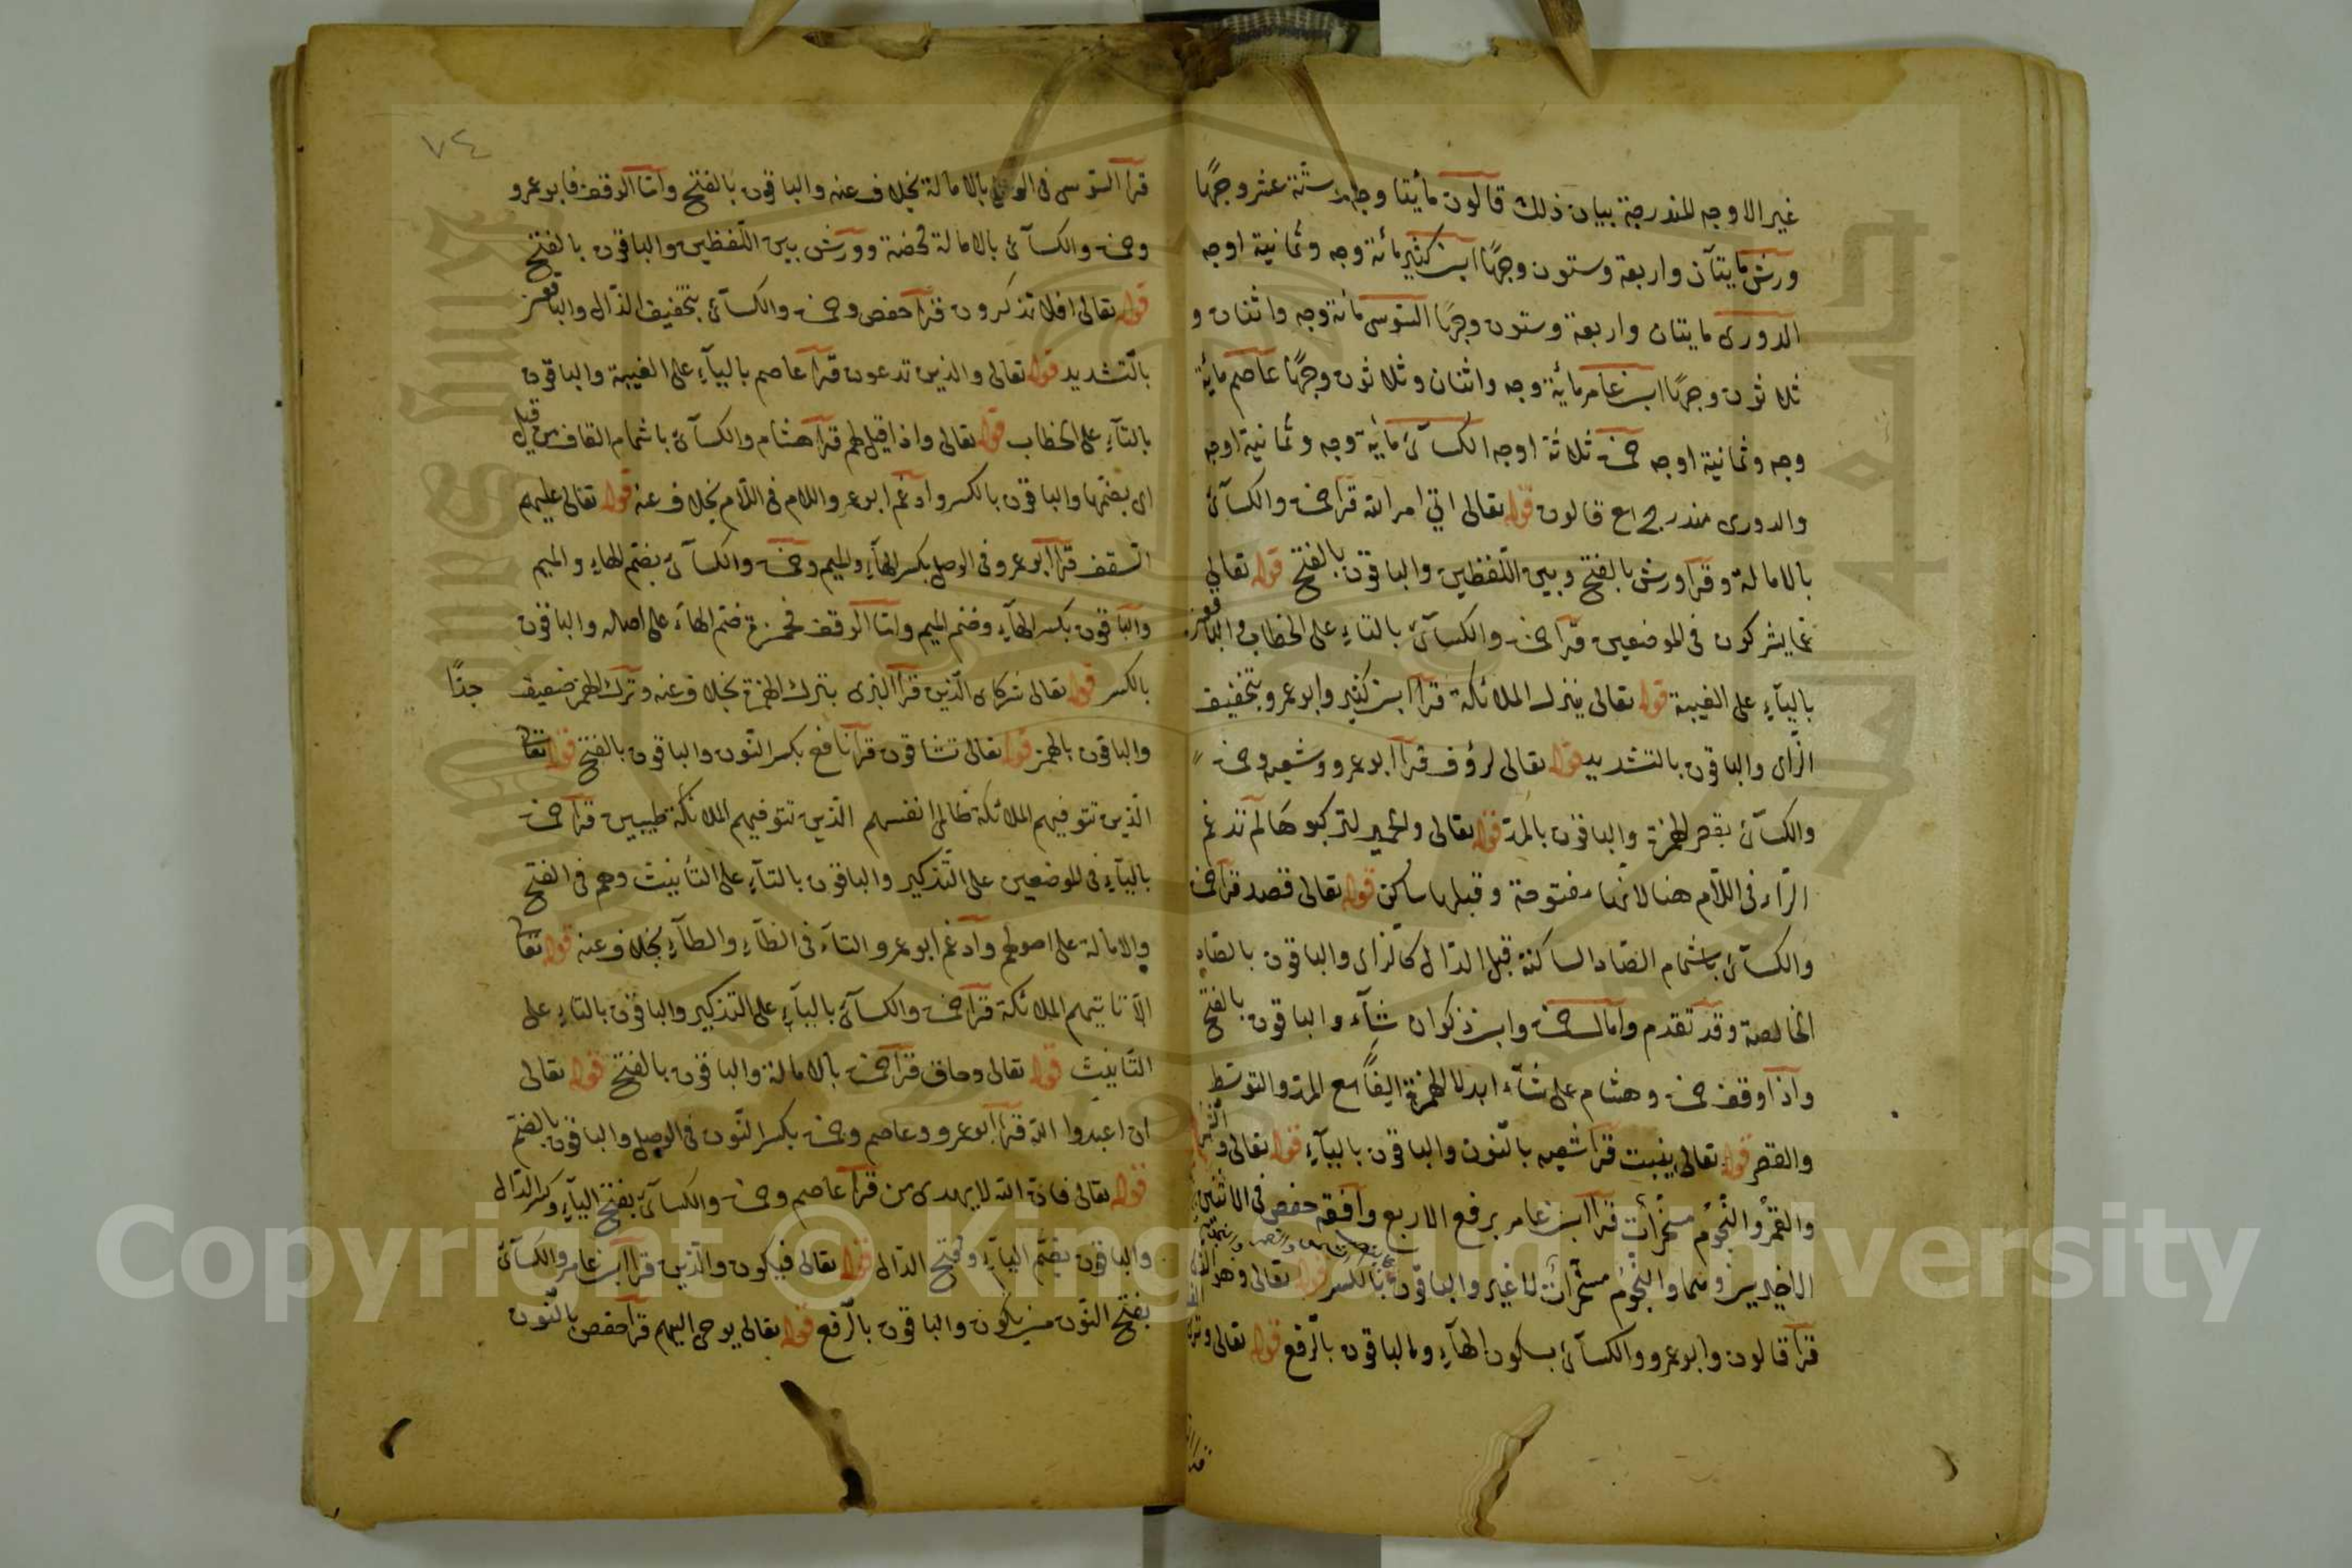 غير الاوجه المندرجة بيان ذلك قالون مأيتا وجه وستة عشر وجهًا
ورش مايتآن واربعة وستون وجهًا ابن كثير مائة وجه وثمانية اوجه
الدورى مايتان واربعة وستون وجهًا السّوسى مائة وجه واثنان و
ثلاثون وجهًا ابن عامر مائة وجه واثنان وثلاثون وجهًا عاصم مائة
وجه وثمانية اوجه حمزة ثلاثة اوجه الكسآئى مائة وجه وثمانية اوجه
والدورى مندرج مع قالون قوله تعالى اتى امر الله قرأ حمزة والكسآئى
بالامالة وقرأ ورش بالفتح وبين اللّفظين والباقون بالفتح قوله تعالى
عمّا يشركون فى الموضعين قرأ حمزة والكسآئى بالتاءِ على الخطاب والباقون
باليآءِ على الغيبة قوله تعالى ينزل الملائكة قرأ ابن كثير وابو عمرو بتخفيف
الزّاى والباقون بالتشديد قوله تعالى لرؤف قرأ ابو عمرو وشعبه وحمزة
والكسآئى بقصر الهمزة والباقون بالمدّ قوله تعالى والحمير لتركبوهَا لم تدغم
الرّاء فى اللّام هنا لانّها مفتوحة وقبلها ساكن قوله تعالى قصد قرأ حمزة
والكسآئى باشمام الصّاد الساكنة قبل الدّال كالزاى والباقون بالصّاد
الخالصة وقد تقدم وآمال حمزة وابن ذكوان شآء والباقون بالفتح
واذا وقف حمزة وهشام على شآء ابدلا الهمزة الفًا مع المدّ والتوسّط
والقصر قوله تعالى ينبت قرأ شعبه بالنّون والباقون باليآءِ قوله تعالى والشّمس
والقمرُ والنّجومُ مسخّراتٌ قرأ ابن عامر برفع الاربع وآفقه حفص فى الاثنين
الاخيرين وهما والنّجومُ مسخّراتٌ لا غير والباقون بالكسر قوله تعالى وهو
قرأ قالون وابو عمرو والكسآئى بسكون الهآءِ والباقون بالرّفع قوله تعالى وترى
٧٤
قرأ السّوسى فى الوصل بالامالة بخلاف عنه والباقون بالفتح وامّا الوقف فابو عمرو
وحمزة والكسآئى بالامالة محضة وورش بين اللّفظين والباقون بالفتح
قوله تعالى افلا تذكرون قرأ حفص وحمزة والكسآئى بتخفيف الذّال والباقون
بالتّشديد قوله تعالى والذين تدعون قرأ عاصم باليآءِ على الغيبة والباقون
بالتآءِ على الخطاب قوله تعالى واذا قيل لهم قرأ هشام والكسآئى باشمام القاف من قيل
اى بضمّها والباقون بالكسر وادغم ابو عمرو اللام فى اللّام بخلاف عنه قوله تعالى عليهم
السّقف قرأ ابو عمرو فى الوصل بكسر الهآءِ والميم وحمزة والكسآئى بضمّ الهاءِ والميم
والباقون بكسر الهآءِ وضمّ الميم وامّا الوقف فحمزة ضمّ الهاءَ على اصله والباقون
بالكسر قوله تعالى شركاى الّذين قرأ البزى بترك الهمزة بخلاف عنه وترك الهمز ضعيف جدًّا
والباقون بالهمز قوله تعالى تشاقون قرأ نافع بكسر النّون والباقون بالفتح قوله تعالى
الّذين تتوفيهم الملائكة ظالمى انفسهم الّذين تتوفيهم الملائكة طيبين قرأ حمزة
باليآءِ فى الموضعين على التّذكير والباقون بالتآءِ على التأنيث وهم فى الفتح
والامالة على اصولهم وآدغم ابو عمرو التآءَ فى الظآءِ والطآءِ بخلاف عنه قوله تعالى
الّا تاتيهم الملائكة قرأ حمزة والكسآئى باليآءِ على التذكير والباقون بالتاءِ على
التّانيث قوله تعالى وحاق قرأ حمزة بالامالة والباقون بالفتح قوله تعالى
ان اعبدوا الله قرأ ابو عمرو وعاصم وحمزة بكسر النّون فى الوصل والباقون بالضمّ
قوله تعالى فانّ الله لا يهدى من قرأ عاصم وحمزة والكسآئى بفتح اليآءِ وكسر الدّال
والباقون بضمّ اليآءِ وفتح الدّال قوله تعالى فيكون والّذين قرأ ابن عامر والكسآئى
بفتح النّون من يكون والباقون بالرّفع قوله تعالى يوحى اليهم قرأ حفص بالنّون
Copyright © King Saud University